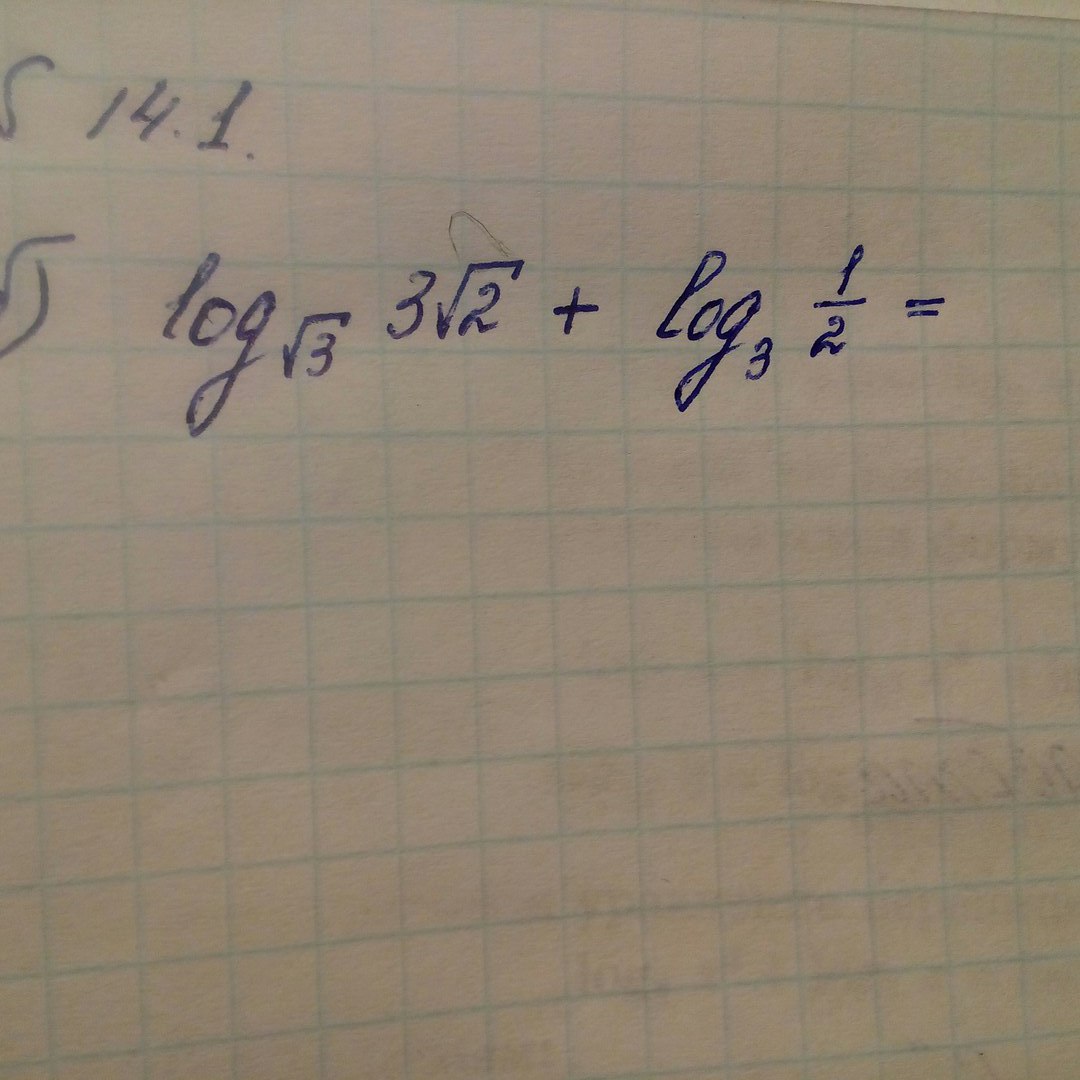 14.1.
log_√3 3√2 + log_3 1/2 =